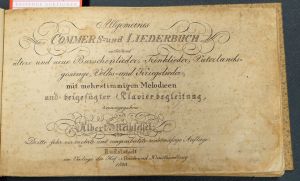 Allgemeines
COMMERS- und LIEDERBUCH
enthaltend
ältere und neue Burschenlieder, Trinklieder, Vaterlands-
gesänge, Volks- und Kriegslieder
mit mehrstimmigen Melodieen
und beigefügter Klavierbegleitung,
herausgegeben
Albert Methfessel
Dritte sehr vermehrte und Auflage
Rudolstadt
im Verlage der Hof- Buch- und Kunsthandlung